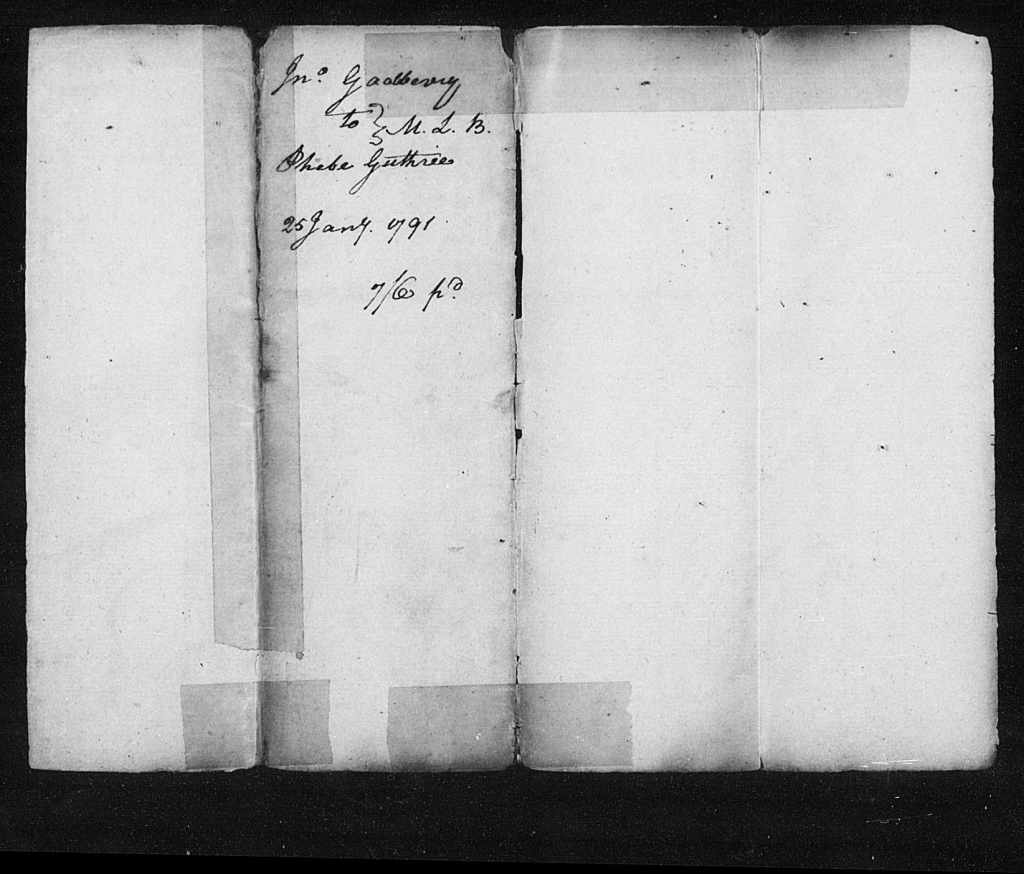 Jno. Gadberry
to } M. L. B.
Phebe Guthrie
25 Jany. 1791
7/6 pd.